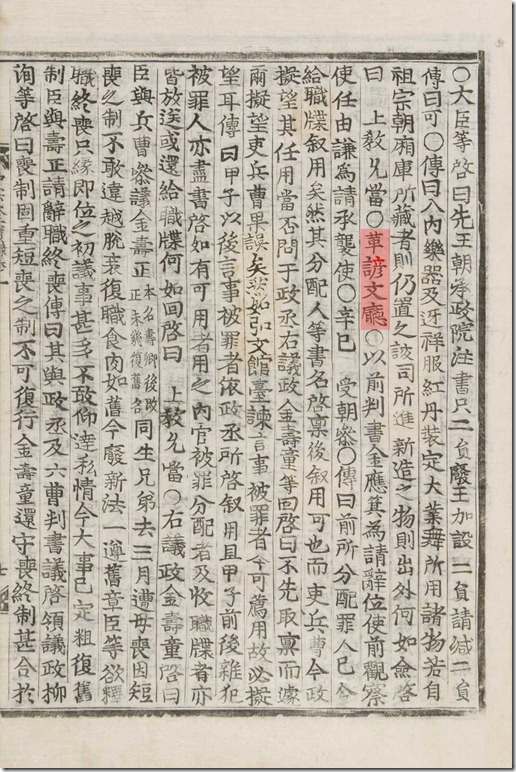 ○大臣等啓曰先王朝承政院注書只二員廢王加設二員請减二員
傳曰可○傳曰入內樂器及迓祥服紅丹裝定大葉舞所用諸物若自
祖宗朝廂庫所藏者則仍置之該司所進新造之物則出外何如僉啓
曰 上敎允當○革諺文廳○以前判書金應箕為請辭位使前觀察
使任由謙為請承襲使○辛巳 受朝叅○傳曰前所分配罪人已令
給職牒叙用矣然其分配人等書名啓禀後叙用可也而吏兵曹今政
擬望其任用當否問于政丞右議政金壽童等回啓曰不先取禀而遽
爾擬望吏兵曹果誤矣然如弘文館臺諫言事被罪者今可薦用故必擬
望耳傳曰甲子以後言事被罪者依政丞所啓叙用且甲子前後雜犯
被罪人亦盡書啓如有可用者用之內官被罪分配者及收職牒者亦
皆放送或還給職牒何如回啓曰 上敎允當○右議政金壽童啓曰
臣與兵曹叅議金壽正本名壽卿後改正未幾復舊名同生兄弟去三月遭母喪因短
喪之制不敢違越脫衰復職食肉如舊今廢新法一遵舊章臣等欲釋
職終喪只緣即位之初議事甚多不敢仰達私情今大事已定粗復舊
制臣與壽正請辭職終喪傳曰其與政丞及六曹判書議啓領議政柳
洵等啓曰喪制固重短喪之制不可復行金壽童還守喪終制甚合於